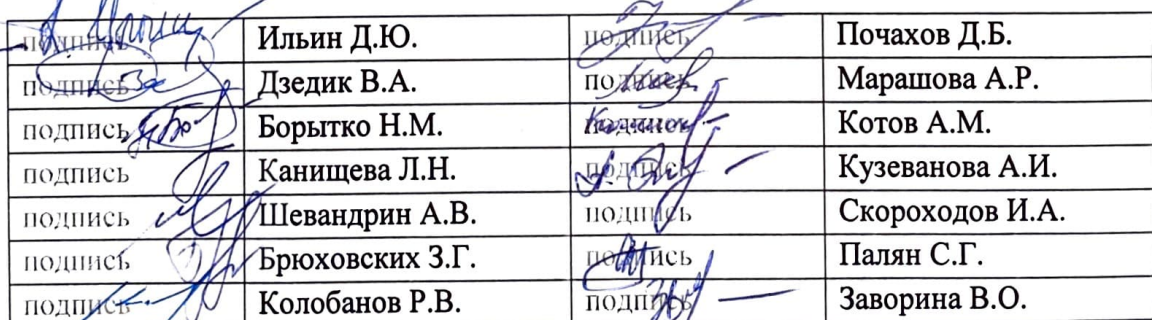 подпись Ильин Д.Ю. подпись Почахов Д.Б.
подпись Дзедик В.А. подпись Марашова А.Р.
подпись Борытко Н.М. подпись Котов А.М.
подпись Канищева Л.Н. подпись Кузеванова А.И.
подпись Шевандрин А.В. подпись Скороходов И.А.
подпись Брюховских З.Г. подпись Палян С.Г.
подпись Колобанов Р.В. подпись Заворина В.О.